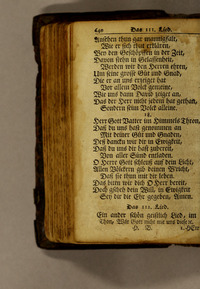 640 Das III. Lied.
Ansehen thun gar mannigfalt,
Wie er sich thut erklären,
Bey den Geschöpffen in der Zeit,
Davon stehn in Gelassenheit,
Werden wir den Herren ehren,
Um seine grosse Güt und Gnad,
Die er an uns erzeiget hat
Vor allem Volck gemeine,
Wie uns dann David zeiget an,
Das der Herr nicht jedem hat gethan,
Sondern sein Volck alleine.
18.
Herr Gott Vatter im Himmels Thron,
Daß du uns hast genommen an
Mit deiner Güt und Gnaden,
Deß dancken wir dir in Ewigkeit,
Daß du uns dir hast bereit,
Von aller Sünd entladen.
O Herre Gott schleuß auf dein Liecht,
Allen Völckern gib deinen Bericht,
Daß sie thun mit dir leben.
Das bitten wir dich O Herr bereit,
Doch gscheh dein Will, in Ewigkeit
Sey dir die Ehr gegeben, Amen.
Das III. Lied.
Ein ander schön geistlich Lied, im
Thon, Wie Gott nicht mit uns diese z.